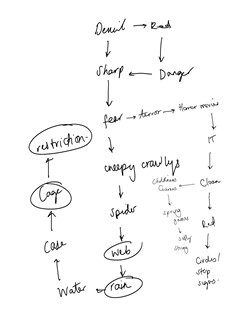 Pencil → Red
Sharp ← Danger
fear → terror → Horror movies
restriction.
creepy crawlys
IT
Childrens
Games
Clown
Cage
Spider
Spring
Red
silly
string
Case
web
Circles/
stop
signs.
Water
rain